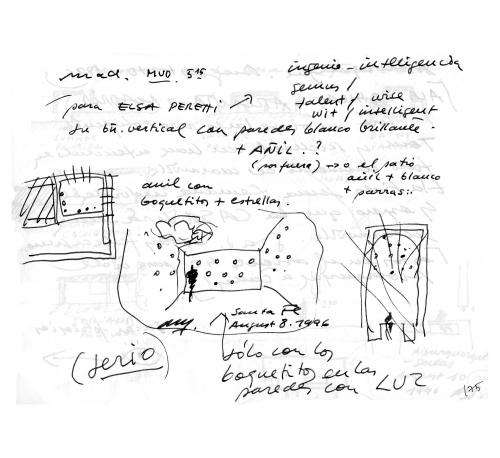 mad. MVD. 5 15
para ELSA PERETTI
su bñ. vertical con paredes blanco brillante.
+ AÑIL.?
(por fuera) → o el patio
añil + blanco
+ parras..
ingenio - intelligencia
genius /
talent / wise
wit / intelligent
añil con
boquetitos + estrellas.
Santa Fe
August 8. 1996
(serio)
sólo con los
boquetitos en las
paredes con LUZ
175